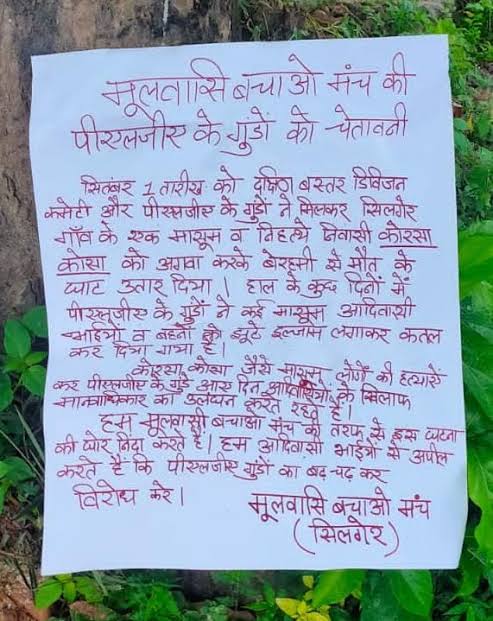 मूलवासि बचाओ मंच की
पीएलजीए के गुंडों को चेतावनी
सितंबर 1 तारीख को दक्षिण बस्तर डिविजन
कमेटी और पीएलजीए के गुंडों ने मिलकर सिलगेर
गाँव के एक मासूम व निहत्थे निवासी कोरसा
कोसा को अगवा करके बेरहमी से मौत के
घाट उतार दिया। हाल के कुछ दिनों में
पीएलजीए के गुंडों ने कई मासूम आदिवासी
भाईयो व बहनों को झूटे इल्जाम लगाकर कतल
कर दिया गया है।
कोरसा कोसा जैसे मासूम लोगों की हत्याऐं
कर पीएलजीए के गुंडे आए दिन आदिवासियों के खिलाफ
मानवाधिकार का उलंघन करते रहते है।
हम मूलवासी बचाओ मंच की तरफ से इस घटना
की घोर निंदा करते है। हम आदिवासी भाईयो से अपील
करते है कि पीएलजीए गुंडों का बढ़ चढ़ कर
विरोध करे।
मूलवासि बचाओ मंच
(सिलगेर)